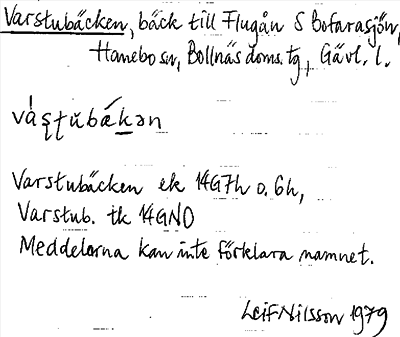 Varstubäcken, bäck till Flugån S Bofarasjön,
Hanebo sn, Bollnäs doms. tg, Gävl. l.
vás̨t̨ŭbákən
Varstubäcken ek 14G7h o. 6h,
Varstub. tk 14GNO
Meddelarna kan inte förklara namnet.
Leif Nilsson 1979